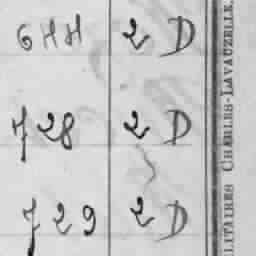 644 2 D
728 2 D
729 2 D
LITAIRES CHARLES-LAVAUZELLE.